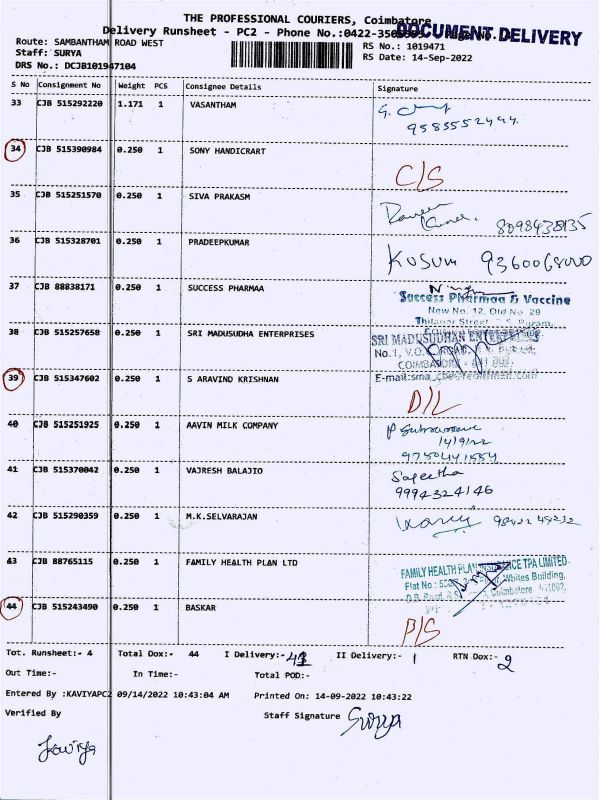 THE PROFESSIONAL COURIERS, Coimbatore
Delivery Runsheet - PC2 - Phone No.:0422-350
DOCUMENT DELIVERY
Route: SAMBANTHAM ROAD WEST
RS No.: 1019471
Staff: SURYA
RS Date: 14-Sep-2022
DRS No.: DCJB101947104
S No Consignment No Weight PCS Consignee Details Signature
33 CJB 515292220 1.171 1 VASANTHAM
9585552444
34 CJB 515390984 0.250 1 SONY HANDICRART
C/S
35 CJB 515251570 0.250 1 SIVA PRAKASM
8098438135
36 CJB 515328701 0.250 1 PRADEEPKUMAR
KUSUM 9360068000
37 CJB 88838171 0.250 1 SUCCESS PHARMAA
Success Pharmaa & Vaccine
New No. 12, Old No. 29
Street
38 CJB 515257658 0.250 1 SRI MADUSUDHA ENTERPRISES
SRI MADHUSUDHAN ENTERPRISES
No.1, V.O.
COIMBATORE
39 CJB 515347602 0.250 1 S ARAVIND KRISHNAN
E-mail:
D/L
40 CJB 515251925 0.250 1 AAVIN MILK COMPANY
14/9/22
9750441554
41 CJB 515370042 0.250 1 VAJRESH BALAJIO
Sajeetha
9994324146
42 CJB 515290359 0.250 1 M.K.SELVARAJAN
43 CJB 88765115 0.250 1 FAMILY HEALTH PLAN LTD
FAMILY HEALTH PLAN INSURANCE TPA LIMITED
Flat No : Whites Building,
Coimbatore
44 CJB 515243490 0.250 1 BASKAR
P/S
Tot. Runsheet:- 4 Total Dox:- 44 I Delivery:- 41 II Delivery:- 1 RTN Dox:- 2
Out Time:- In Time:- Total POD:-
Entered By :KAVIYAPC2 09/14/2022 10:43:04 AM Printed On: 14-09-2022 10:43:22
Verified By Staff Signature Surya
Kaviya